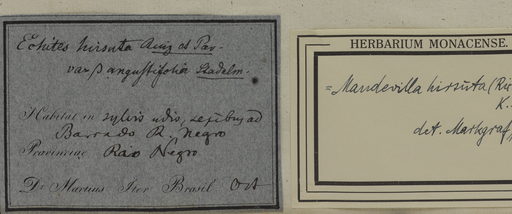 Echites hirsuta Ruiz et Pav.
var β angustifolia Stadelm.
Habitat in sylvis udis, ad
Barra do R. Negro
Provinciae Rio Negro
Dr Martius Iter Brasil Oct
HERBARIUM MONACENSE.
= Mandevilla hirsuta (Ric
K..
det. Markgraf,